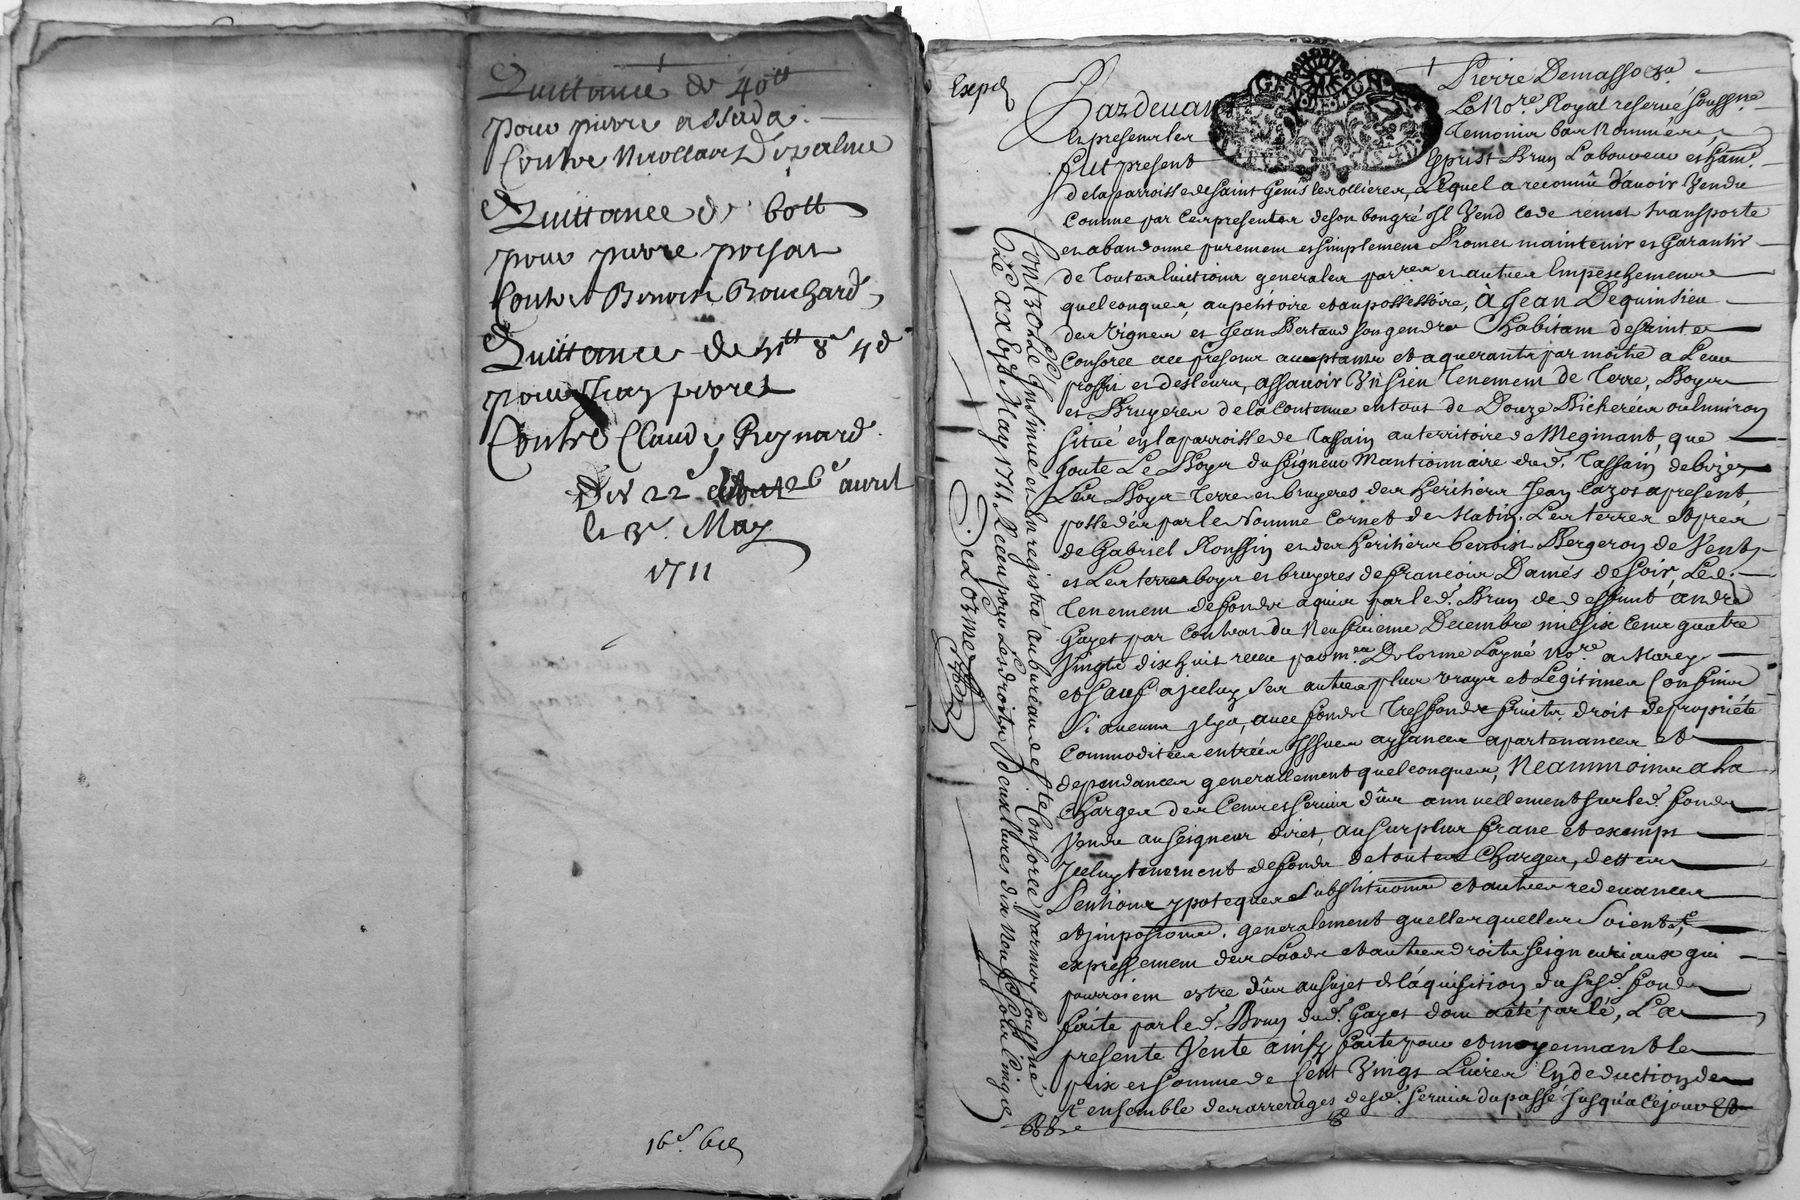 Quittance de 40tt
pour pierre assada
Contre
Quittance de 60tt
pour pierre poisat
Contre Benoist Bouchard
Quittance de 8s 4d
pour pivret
Contre Claude Reynard
Des 22e 26e avril
le 3e. May
1711
Expié
Pardevant Pierre Demasso
Le No.re Royal reservé soussigné
Es presences temoins bas Nommés
fut present Brun Laboureur et habt.
de la parroisse de saint Genis les ollieres, Lequel a reconnû d'avoir Vendu
Comme par Ces presentes de son bon gré Il Vend Cede remet transporte
et abandonne purement et simplement Promet maintenir et Garantir
de Toutes Euictions generales et autres Empeschements
quelconques, au petitoire et au possessoire, à Jean Dequinsieu
des Vignes et Jean Bertaud son gendre habitans de sainte
Consorce au present acceptants et aquerants par moitié a Leur
proffit et des leurs, assavoir Un sien Tenement de Terre, Boys
et Bruyeres de la Contenue en tout de Douze Bicherées ou Environ
Situé en la parroisse de Tassain au territoire de Meginant, que
Joute Le Boys du seigneur Mantionnaire dud. Tassain de bize
Les Boys Terre et bruyeres des heritiers Jean Cazot a present
possedés par le Nomme Cornet de Matin. Les terres et prés
de Gabriel Roussin et des heritiers benoist Bergeron de Vent,
et Les terres boys et bruyeres de francois Damés de soir, Led.
Tenement de fonds aquis par led. Brun de deffunt andré
Gayet par Contrat du Neufvieme Decembre mil six Cent quatre
Vingts dix huit receu par me. Delorme Layné No.re a
et sauf a iceluy ses autres plus vrays et Legitimes Confins
Si aucuns y a, avec fonds Tresfonds fruits droit de propriété
Commodités entrées Issues aysances apartenances et
dependances generallement quelconques, Neammoins a la
Charge des Cens et servis dûs annuellement sur led. fonds
Vendu au seigneur diret, au surplus franc et exempt
Iceluy tenement de fonds de toutes Charges, dettes
Pentions ypoteques substitutions et autres redevances
et impositions, generalement quelles quelles Soient, et
expressement des Laods et autres droits seigneuriaux qui
pourroient estre dûs au sujet de l'aquisition du susd. fonds
faite par led. Brun dud. Gayet dont a été parlé, La
presente Vente ainsy faite pour et moyennant le
prix et somme de Cent Vingt Livres En deduction de
ensemble des arrerages desd. servis du passé jusqu'a ce jour
Controllé Insinué et Enregistré au bureau de ste Consorce par moy soussigné
le xxbje May 1711 Receu pour Les droits Deux livres dix neuf sols
Delorme